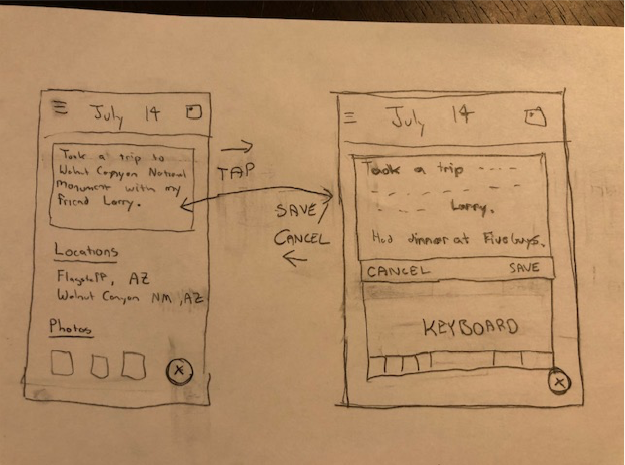 July 14
Took a trip to
Walnut Canyon National
Monument with my
friend Larry.
Locations
Flagstaff, AZ
Walnut Canyon NM, AZ
Photos
X
TAP
SAVE/
CANCEL
July 14
Took a trip ----
--- Larry.
Had dinner at Five Guys.
CANCEL SAVE
KEYBOARD
X